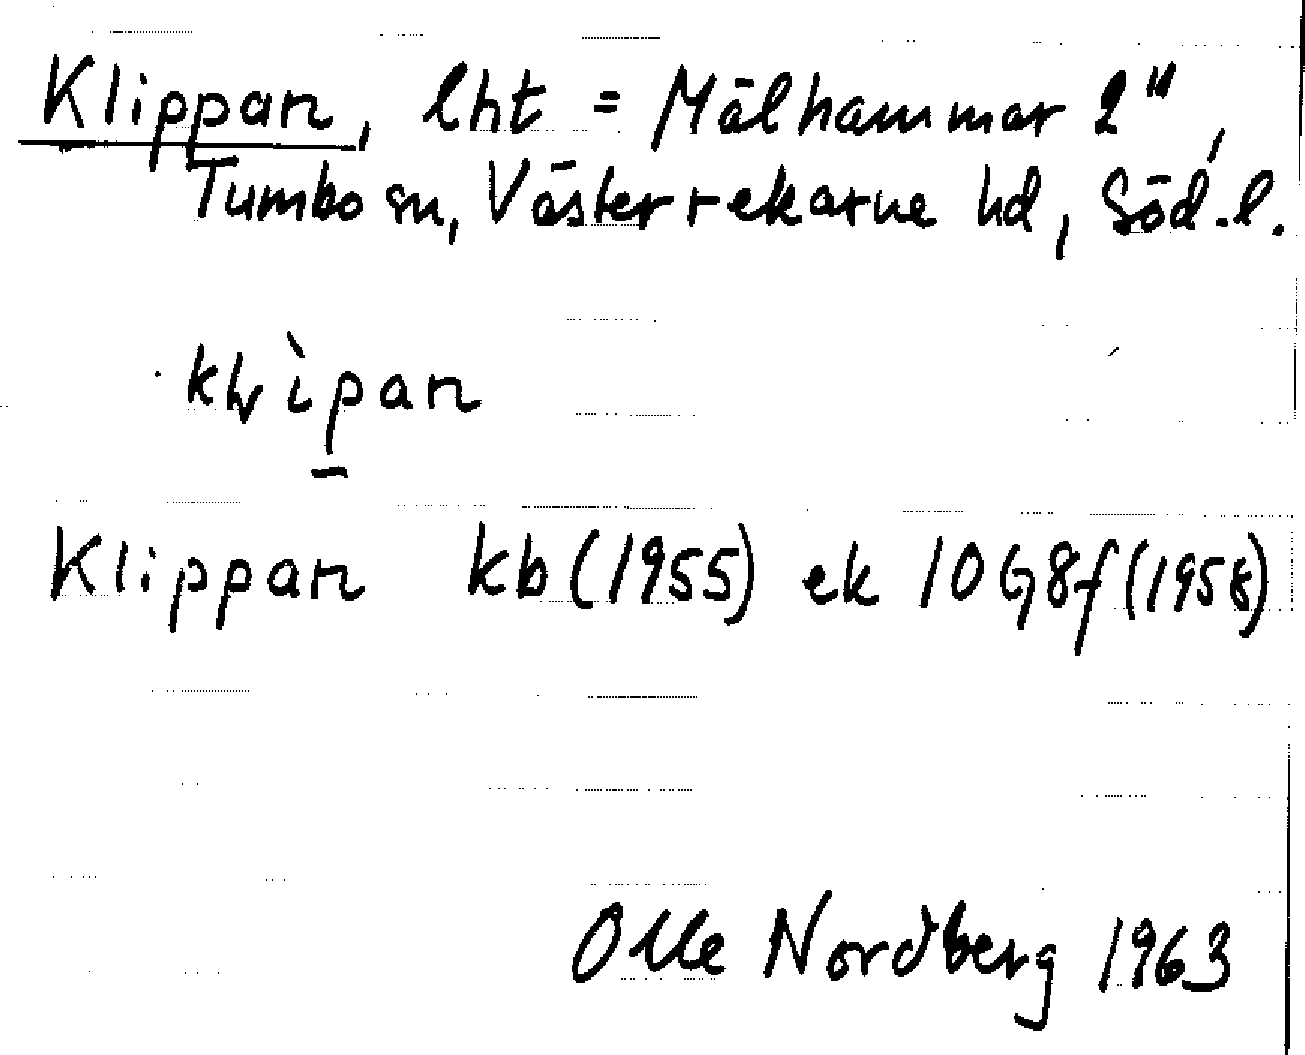 Klippan, lht = Mälhammar 2",
Tumbo sn, Västerrekarne hd, Söd.l.
klìpan
Klippan kb (1955) ek 10G8f (1958)
Olle Nordberg 1963